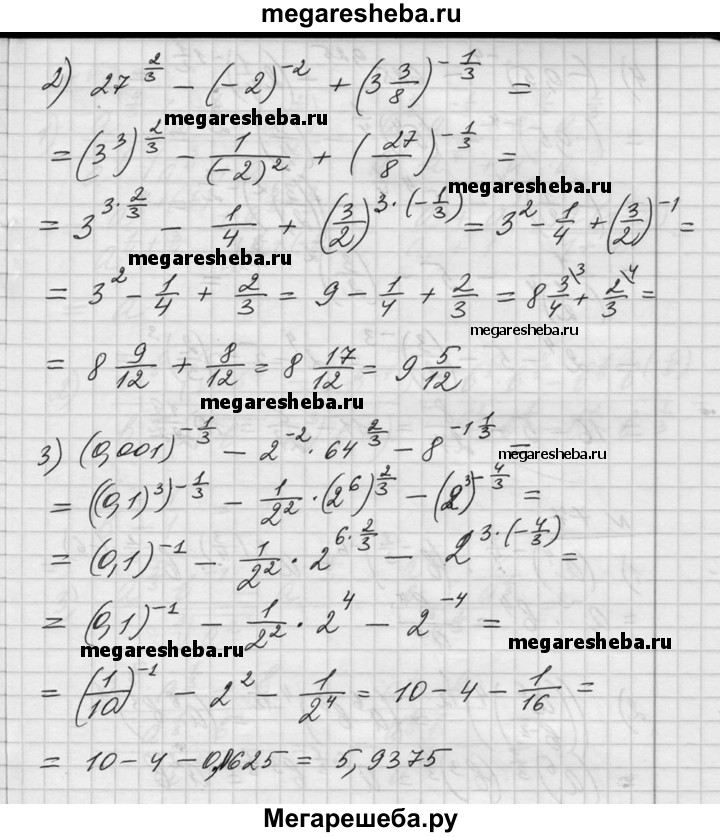 megaresheba.ru
2) 27^{2/3} − (−2)^{−2} + (3 3/8)^{−1/3} =
megaresheba.ru
= (3^3)^{2/3} − 1/(−2)^2 + (27/8)^{−1/3} =
megaresheba.ru
= 3^{3·2/3} − 1/4 + (3/2)^{3·(−1/3)} = 3^2 − 1/4 + (3/2)^{−1} =
megaresheba.ru
= 3^2 − 1/4 + 2/3 = 9 − 1/4 + 2/3 = 8 3/4^{\3} + 2/3^{\4} =
megaresheba.ru
= 8 9/12 + 8/12 = 8 17/12 = 9 5/12
megaresheba.ru
3) (0,001)^{−1/3} − 2^{−2} · 64^{2/3} − 8^{−1 1/3} =
megaresheba.ru
= ((0,1)^3)^{−1/3} − 1/2^2 · (2^6)^{2/3} − (2^3)^{−4/3} =
= (0,1)^{−1} − 1/2^2 · 2^{6·2/3} − 2^{3·(−4/3)} =
= (0,1)^{−1} − 1/2^2 · 2^4 − 2^{−4} =
megaresheba.ru
megaresheba.ru
= (1/10)^{−1} − 2^2 − 1/2^4 = 10 − 4 − 1/16 =
= 10 − 4 − 0,0625 = 5,9375
Мегарешеба.ру